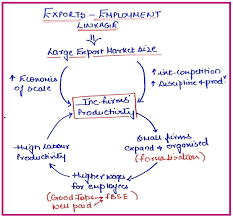 EXPORTS - EMPLOYMENT
LINKAGE
Large Export Market Size
↑ Economies
of scale
↑ int. competition
↑ Discipline + prod^y
↑ Inc. firms'
Productivity
High Labour
Productivity
Small firms
expand & organised
(formalisation)
Higher wages
for employees
(Good Jobs →
well paid)